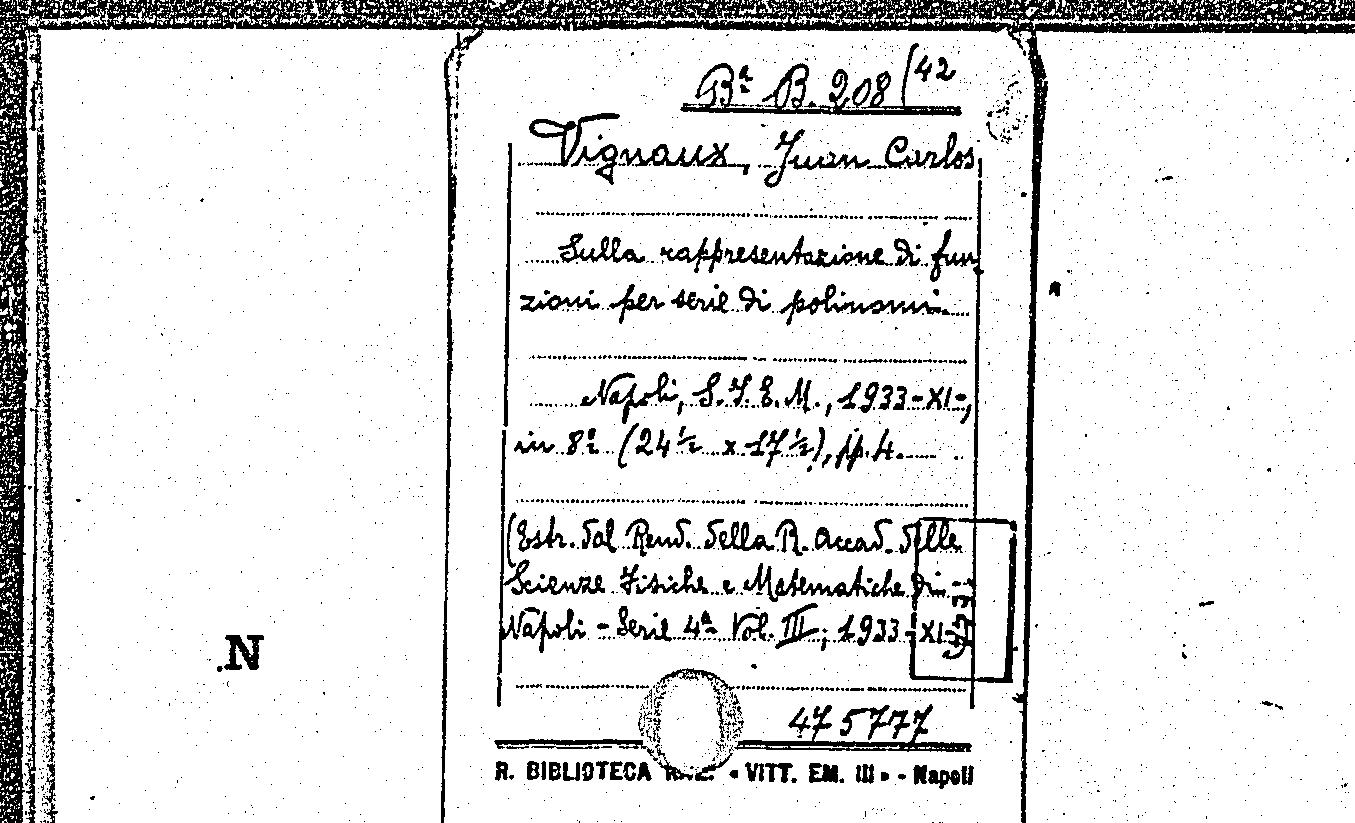 Bª B. 208 (42
Vignaux, Juan Carlos
Sulla rappresentazione di fun
zioni per serie di polinomi.
Napoli, S.I.E.M., 1933-XI-,
in 8º (24½ x 17½), pp. 4.
(Estr. dal Rend. della R. Accad. delle
Scienze Fisiche e Matematiche di
Napoli - Serie 4ª Vol. III; 1933-XI-
475777
R. BIBLIOTECA « VITT. EM. III » - Napoli
N